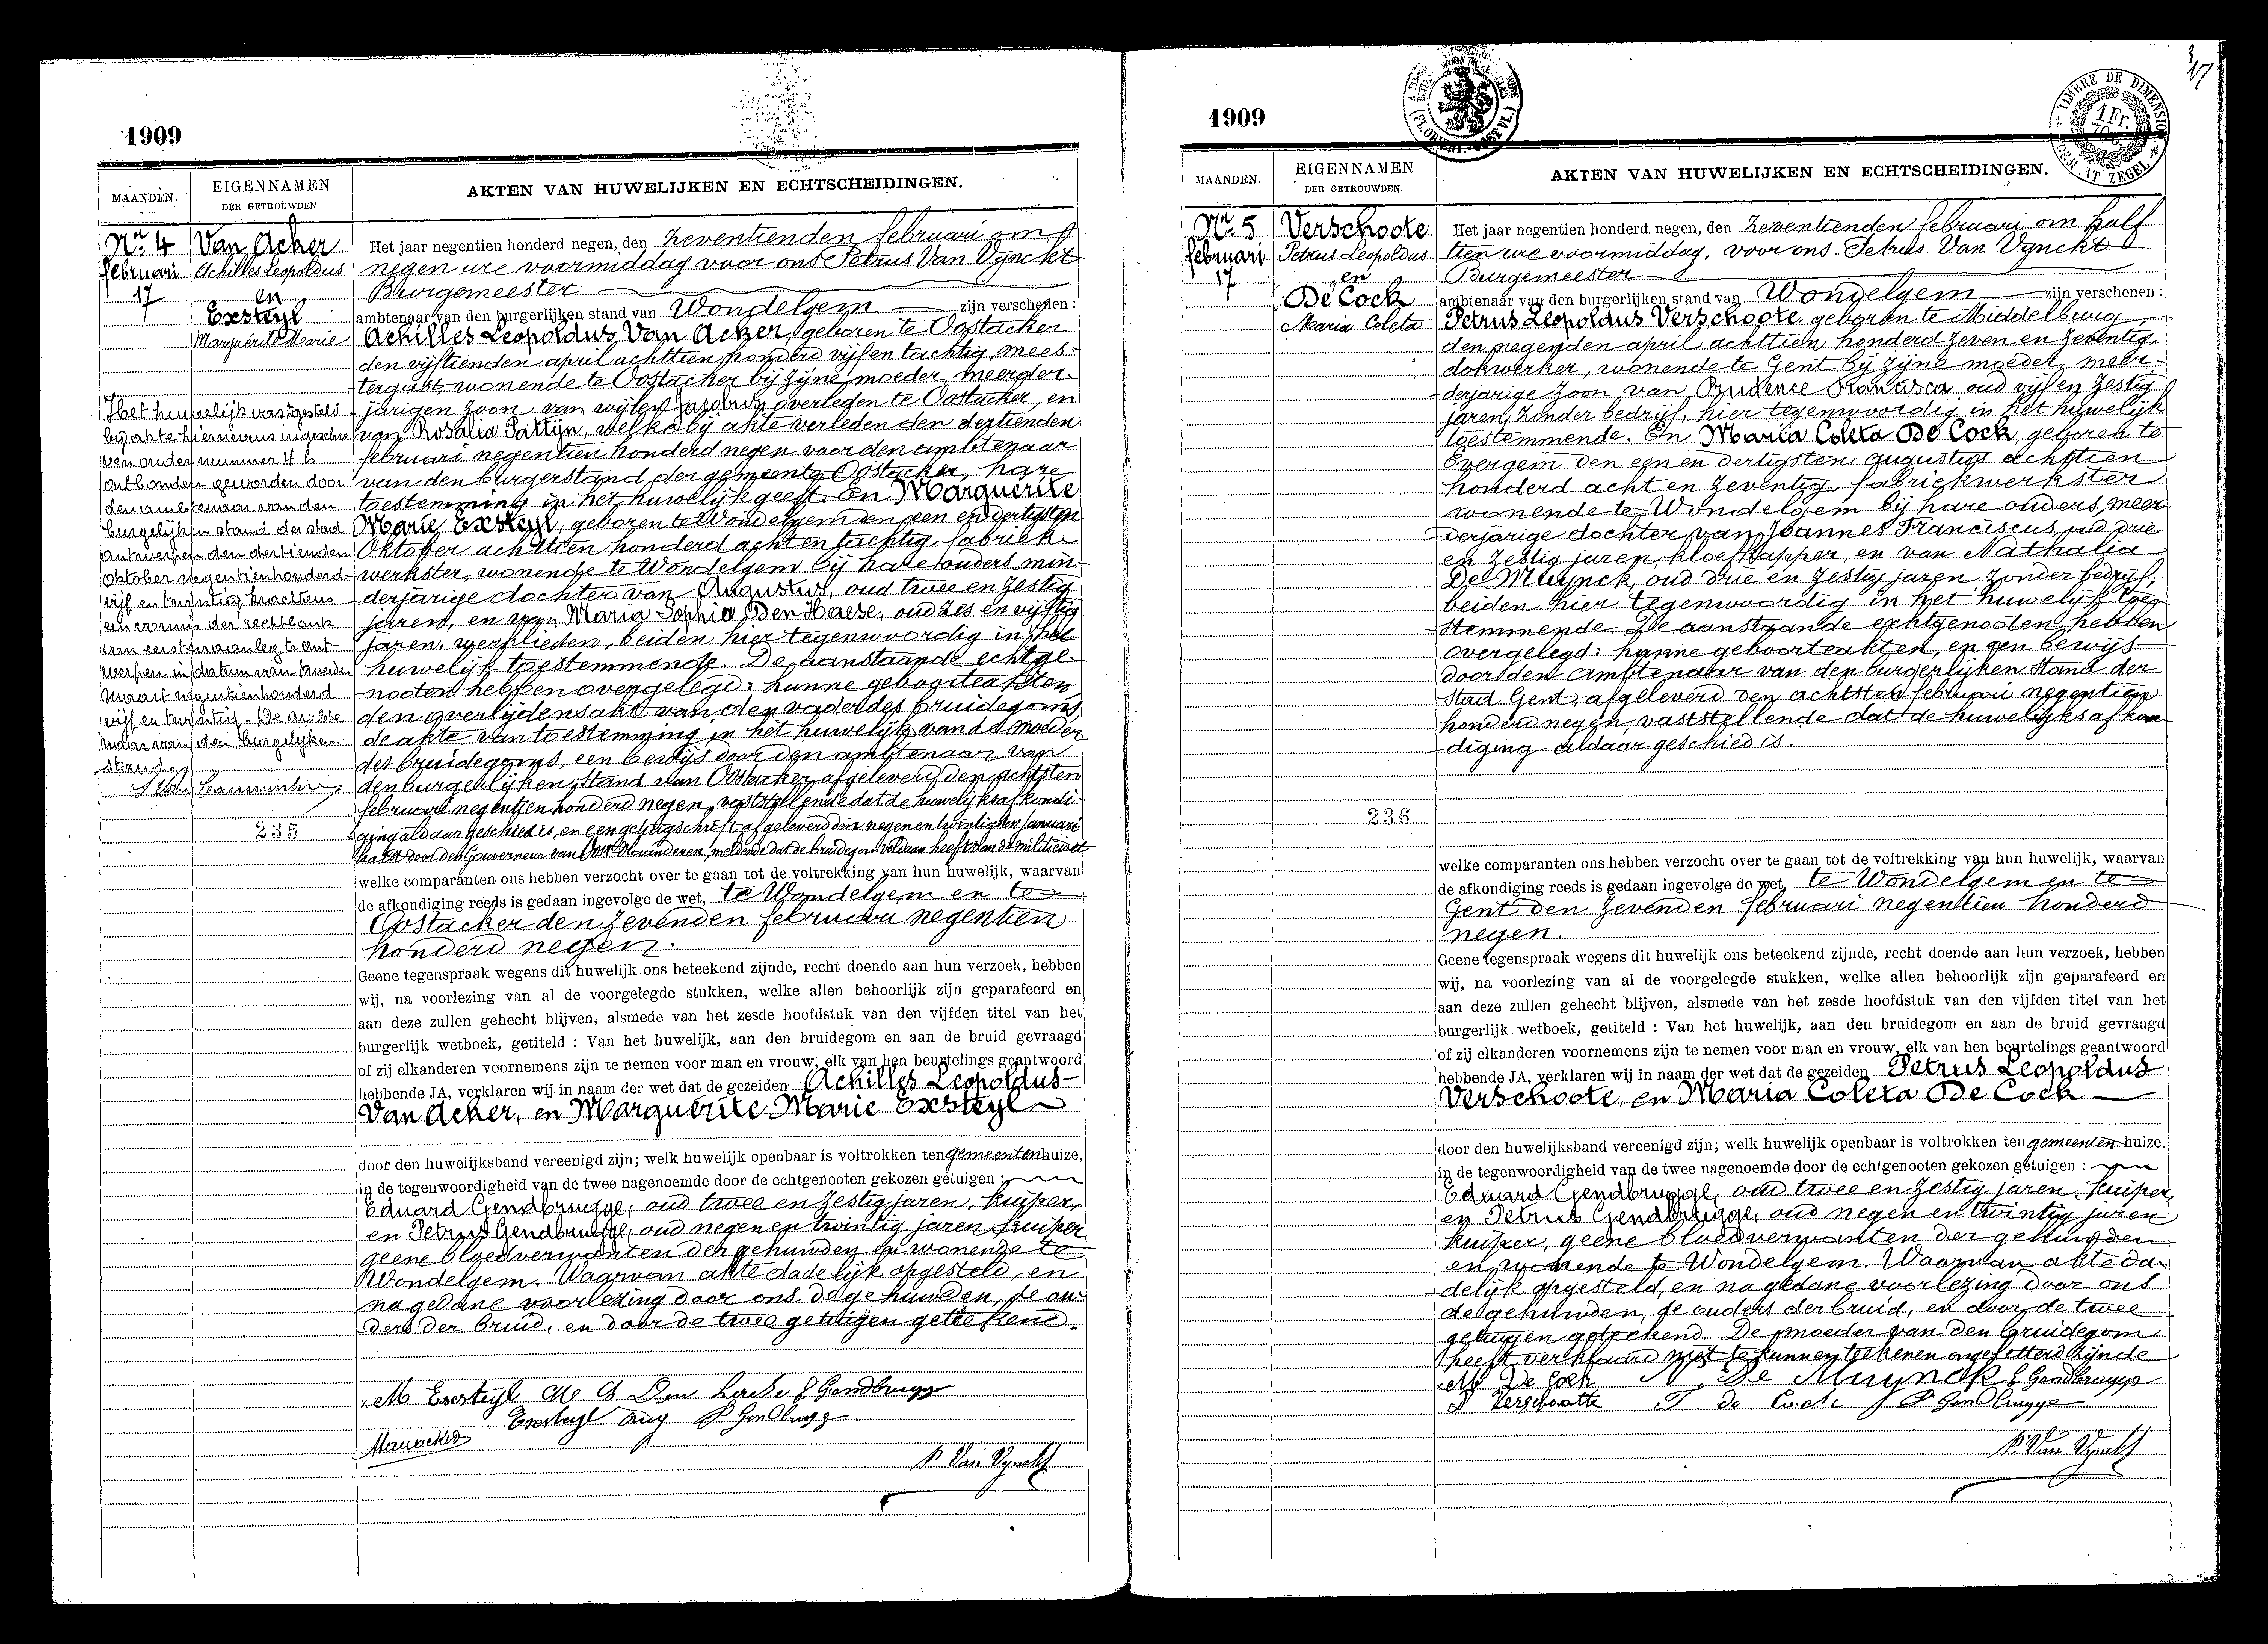 1909
MAANDEN.
EIGENNAMEN
DER GETROUWDEN
AKTEN VAN HUWELIJKEN EN ECHTSCHEIDINGEN.
Nr. 4
februari
17
Van Acker
Achilles Leopoldus
en
Exsteyl
Marguerite Marie
Het huwelijk vastgesteld
bij akte hiernevens ingeschre
ven onder nummer 4 is
ontbonden geworden door
den ambtenaar van den
burgelijken stand der stad
Antwerpen den dertienden
Oktober negentienhonderd
vijf en twintig krachtens
een vonnis der rechtbank
van eersten aanleg te Ant-
werpen in datum van tweeden
Maart negentienhonderd
vijf en twintig. De ambte
naar van den burgelijken
stand.
235
Het jaar negentien honderd negen, den zeventienden februari om
negen ure voormiddag voor ons Petrus Van Vynckt
Burgemeester
ambtenaar van den burgerlijken stand van Wondelgem zijn verschenen :
Achilles Leopoldus Van Acker, geboren te Oostacker
den vijftienden april achttien honderd vijf en tachtig, mees-
tergast, wonende te Oostacker bij zijne moeder, meerder-
jarigen zoon van wijlen overleden te Oostacker, en
van Rosalia Pattijn, welke bij akte verleden den dertienden
februari negentien honderd negen voor den ambtenaar
van den burgerstand der gemeente Oostacker, hare
toestemming in het huwelijk geeft. En Marguerite
Marie Exsteyl, geboren te Wondelgem den een en dertigsten
Oktober achttien honderd acht en tachtig, fabriek-
werkster, wonende te Wondelgem bij hare ouders, min-
derjarige dochter van Augustus, oud twee en zestig
jaren, en van Maria Sophia Den Haese, oud zes en vijftig
jaren, werklieden, beiden hier tegenwoordig in het
huwelijk toestemmende. De aanstaande echtge-
nooten hebben overgelegd: hunne geboorteakten,
den overlijdensakt van den vader des bruidegoms,
de akte van toestemming in het huwelijk van de moeder
des bruidegoms, een bewijs door den ambtenaar van
den burgerlijken stand van Oostacker afgeleverd den achtsten
februari negentien honderd negen, vaststellende dat de huwelijksafkondi-
ging aldaar geschied is, en een getuigschrift afgeleverd den negen en twintigsten Januari
laatst door den Gouverneur van Oost Vlaanderen, meldende dat de bruidegom voldaan heeft aan de militiewet
welke comparanten ons hebben verzocht over te gaan tot de voltrekking van hun huwelijk, waarvan
de afkondiging reeds is gedaan ingevolge de wet, te Wondelgem en te
Oostacker den zevenden februari negentien
honderd negen.
Geene tegenspraak wegens dit huwelijk ons beteekend zijnde, recht doende aan hun verzoek, hebben
wij, na voorlezing van al de voorgelegde stukken, welke allen behoorlijk zijn geparafeerd en
aan deze zullen gehecht blijven, alsmede van het zesde hoofdstuk van den vijfden titel van het
burgerlijk wetboek, getiteld : Van het huwelijk, aan den bruidegom en aan de bruid gevraagd
of zij elkanderen voornemens zijn te nemen voor man en vrouw, elk van hen beurtelings geantwoord
hebbende JA, verklaren wij in naam der wet dat de gezeiden Achilles Leopoldus
Van Acker, en Marguerite Marie Exsteyl
door den huwelijksband vereenigd zijn; welk huwelijk openbaar is voltrokken ten gemeentenhuize,
in de tegenwoordigheid van de twee nagenoemde door de echtgenooten gekozen getuigen :
Eduard Gendbrugge, oud twee en zestig jaren, kuiper,
en Petrus Gendbrugge, oud negen en twintig jaren kuiper
geene bloedverwanten der gehuwden en wonende te
Wondelgem. Waarvan akte dadelijk opgesteld, en
na gedane voorlezing door ons de gehuwden, de ou-
ders der bruid, en door de twee getuigen geteekend.
M Exsteyl E Gendbrugge
Exsteyl Aug P Gendbrugge
P. Van Vynckt
1909
TIMBRE DE DIMENSION
1 Fr.
MAANDEN.
EIGENNAMEN
DER GETROUWDEN.
AKTEN VAN HUWELIJKEN EN ECHTSCHEIDINGEN.
Nr. 5
februari
17
Verschoote
Petrus Leopoldus
en
De Cock
Maria Coleta
236
Het jaar negentien honderd negen, den zeventienden februari om half
tien ure voormiddag, voor ons Petrus Van Vynckt
Burgemeester
ambtenaar van den burgerlijken stand van Wondelgem zijn verschenen :
Petrus Leopoldus Verschoote, geboren te Middelburg
den negenden april achttien honderd zeven en zeventig,
dokwerker, wonende te Gent bij zijne moeder, meer-
derjarige zoon van Prudence Francisca oud vijf en zestig
jaren, zonder bedrijf, hier tegenwoordig in het huwelijk
toestemmende. En Maria Coleta De Cock, geboren te
Evergem den een en dertigsten augustus achttien
honderd acht en zeventig, fabriekwerkster
wonende te Wondelgem bij hare ouders, meer
derjarige dochter van Joannes Franciscus, oud drie
en zestig jaren, kloefkapper, en van Nathalia
De Muynck, oud drie en zestig jaren zonder bedrijf,
beiden hier tegenwoordig in het huwelijk toe-
stemmende. De aanstaande echtgenooten hebben
overgelegd: hunne geboorteakten, en een bewijs
door den ambtenaar van den burgerlijken stand der
stad Gent, afgeleverd den achtsten februari negentien
honderd negen, vaststellende dat de huwelijksafkon
diging aldaar geschied is.
welke comparanten ons hebben verzocht over te gaan tot de voltrekking van hun huwelijk, waarvan
de afkondiging reeds is gedaan ingevolge de wet, te Wondelgem en te
Gent den zevenden februari negentien honderd
negen.
Geene tegenspraak wegens dit huwelijk ons beteekend zijnde, recht doende aan hun verzoek, hebben
wij, na voorlezing van al de voorgelegde stukken, welke allen behoorlijk zijn geparafeerd en
aan deze zullen gehecht blijven, alsmede van het zesde hoofdstuk van den vijfden titel van het
burgerlijk wetboek, getiteld : Van het huwelijk, aan den bruidegom en aan de bruid gevraagd
of zij elkanderen voornemens zijn te nemen voor man en vrouw, elk van hen beurtelings geantwoord
hebbende JA, verklaren wij in naam der wet dat de gezeiden Petrus Leopoldus
Verschoote, en Maria Coleta De Cock
door den huwelijksband vereenigd zijn; welk huwelijk openbaar is voltrokken ten gemeenten-huize.
in de tegenwoordigheid van de twee nagenoemde door de echtgenooten gekozen getuigen :
Eduard Gendbrugge, oud twee en zestig jaren, kuiper,
en Petrus Gendbrugge, oud negen en twintig jaren
kuiper, geene bloedverwanten der gehuwden
en wonende te Wondelgem. Waarvan akte da-
delijk opgesteld, en na gedane voorlezing door ons
de gehuwden, de ouders der bruid, en door de twee
getuigen geteekend. De moeder van den bruidegom
heeft verklaard niet te kunnen teekenen ongeletterd zijnde
M De Cock N De Muynck E Gendbrugge
P Verschootte F de Cock P Gendbrugge
P. Van Vynckt